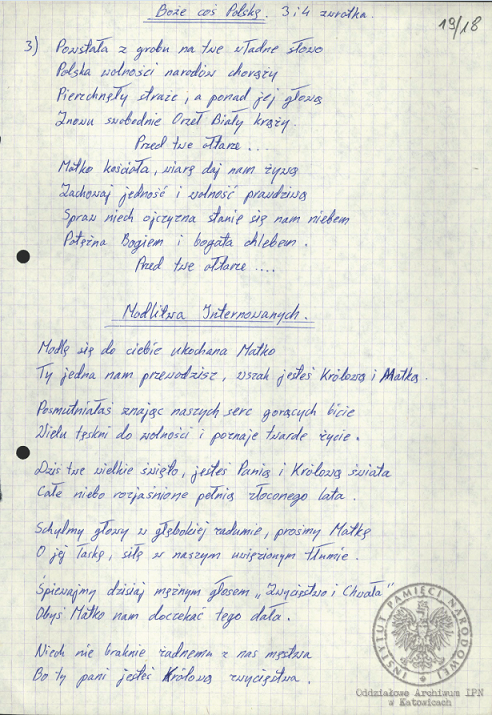 Boże coś Polskę. 3 i 4 zwrotka.
19/18
3) Powstała z grobu na twe władne słowo
Polska wolności narodów chorąży
Pierzchnęły straże, a ponad jej głową
Znowu swobodnie Orzeł Biały krąży.
Przed twe ołtarze ....
Matko kościoła, wiarę daj nam żywą
Zachowaj jedność i wolność prawdziwą
Spraw niech ojczyzna stanie się nam niebem
Potężna Bogiem i bogata chlebem.
Przed twe ołtarze ....
Modlitwa Internowanych.
Modlę się do ciebie ukochana Matko
Ty jedna nam przewodzisz, wszak jesteś Królową i Matką.
Posmutniałaś znając naszych serc gorących bicie
Wielu tęskni do wolności i poznaje twarde życie.
Dziś twe wielkie święto, jesteś Panią i Królową świata
Całe niebo rozjaśnione pełnią złoconego lata.
Schylmy głowy w głębokiej zadumie, prosimy Matkę
O jej łaskę, siłę w naszym uwięzionym tłumie.
Śpiewajmy dzisiaj mężnym głosem „Zwycięstwo i Chwała"
Obyś Matko nam doczekać tego dała.
Niech nie braknie żadnemu z nas męstwa
Bo ty pani jesteś Królową zwycięstwa.
INSTYTUT PAMIĘCI NARODOWEJ
Oddziałowe Archiwum IPN
w Katowicach